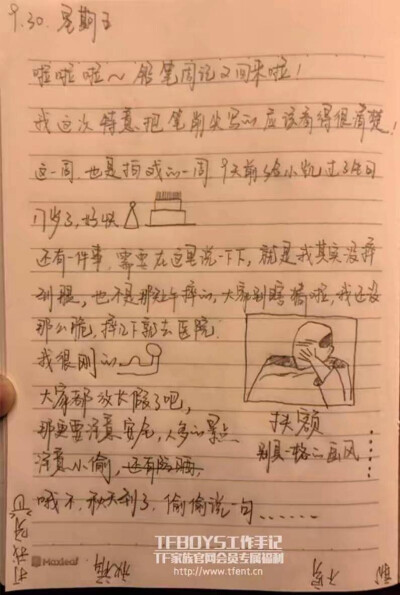 9.30. 星期五
啦啦啦~ 铅笔周记又回来啦!
我这次特意把笔削尖写的应该看得很清楚!
这一周也是拍戏的一周 9天前给小凯过了生日
17岁了,好快
还有一件事,需要在这里说一下下,就是我其实没摔
到腿,也不是那处午摔的,大家别瞎猜啦,我还没
那么脆,摔一下就去医院.
我很刚的
大家都放长假了吧,
那更要注意安全,人多的景点
注意小偷,还有
哦不,秋天到了,偷偷说一句......
扶额
别具一格的画风
Maxleaf
TFBOYS工作手记
TF家族官网会员专属福利
http://www.tfent.cn